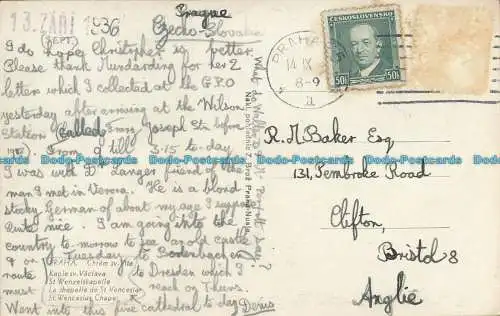 13. ZÁŘÍ 1936
(SEPT)
Prague
Czecho-Slovakia
I do hope Christopher is better
Please thank Mundarding for her 2
letters which I collected at the G.P.O
yesterday after arriving at the Wilson
Station (called Franz Joseph Stn before
From 9 till 3.15 to-day
I was with D. Langer friend of the
man I met in Verona. He is a blond
stocky German of about my age I suppose
Quite nice. I am going into the
country to morrow to see an old castle
& on Tuesday to Bodenbach en
route to Dresden which I
must reach on Thurs.
Went into this fine cathedral to day Denis
PRAHA. Chrám sv. Víta
Kaple sv. Václava
St. Wenzelskapelle
La chapelle de St Venceslas
St. Wenceslas Chapel
What do Walter D & M. Pocock say?
ČESKOSLOVENSKO
50h 50h
PRAHA
14 IX
8-9
R. M Baker Esq
131, Pembroke Road
Clifton,
Bristol 8
Anglie
Bamforth-Postcards